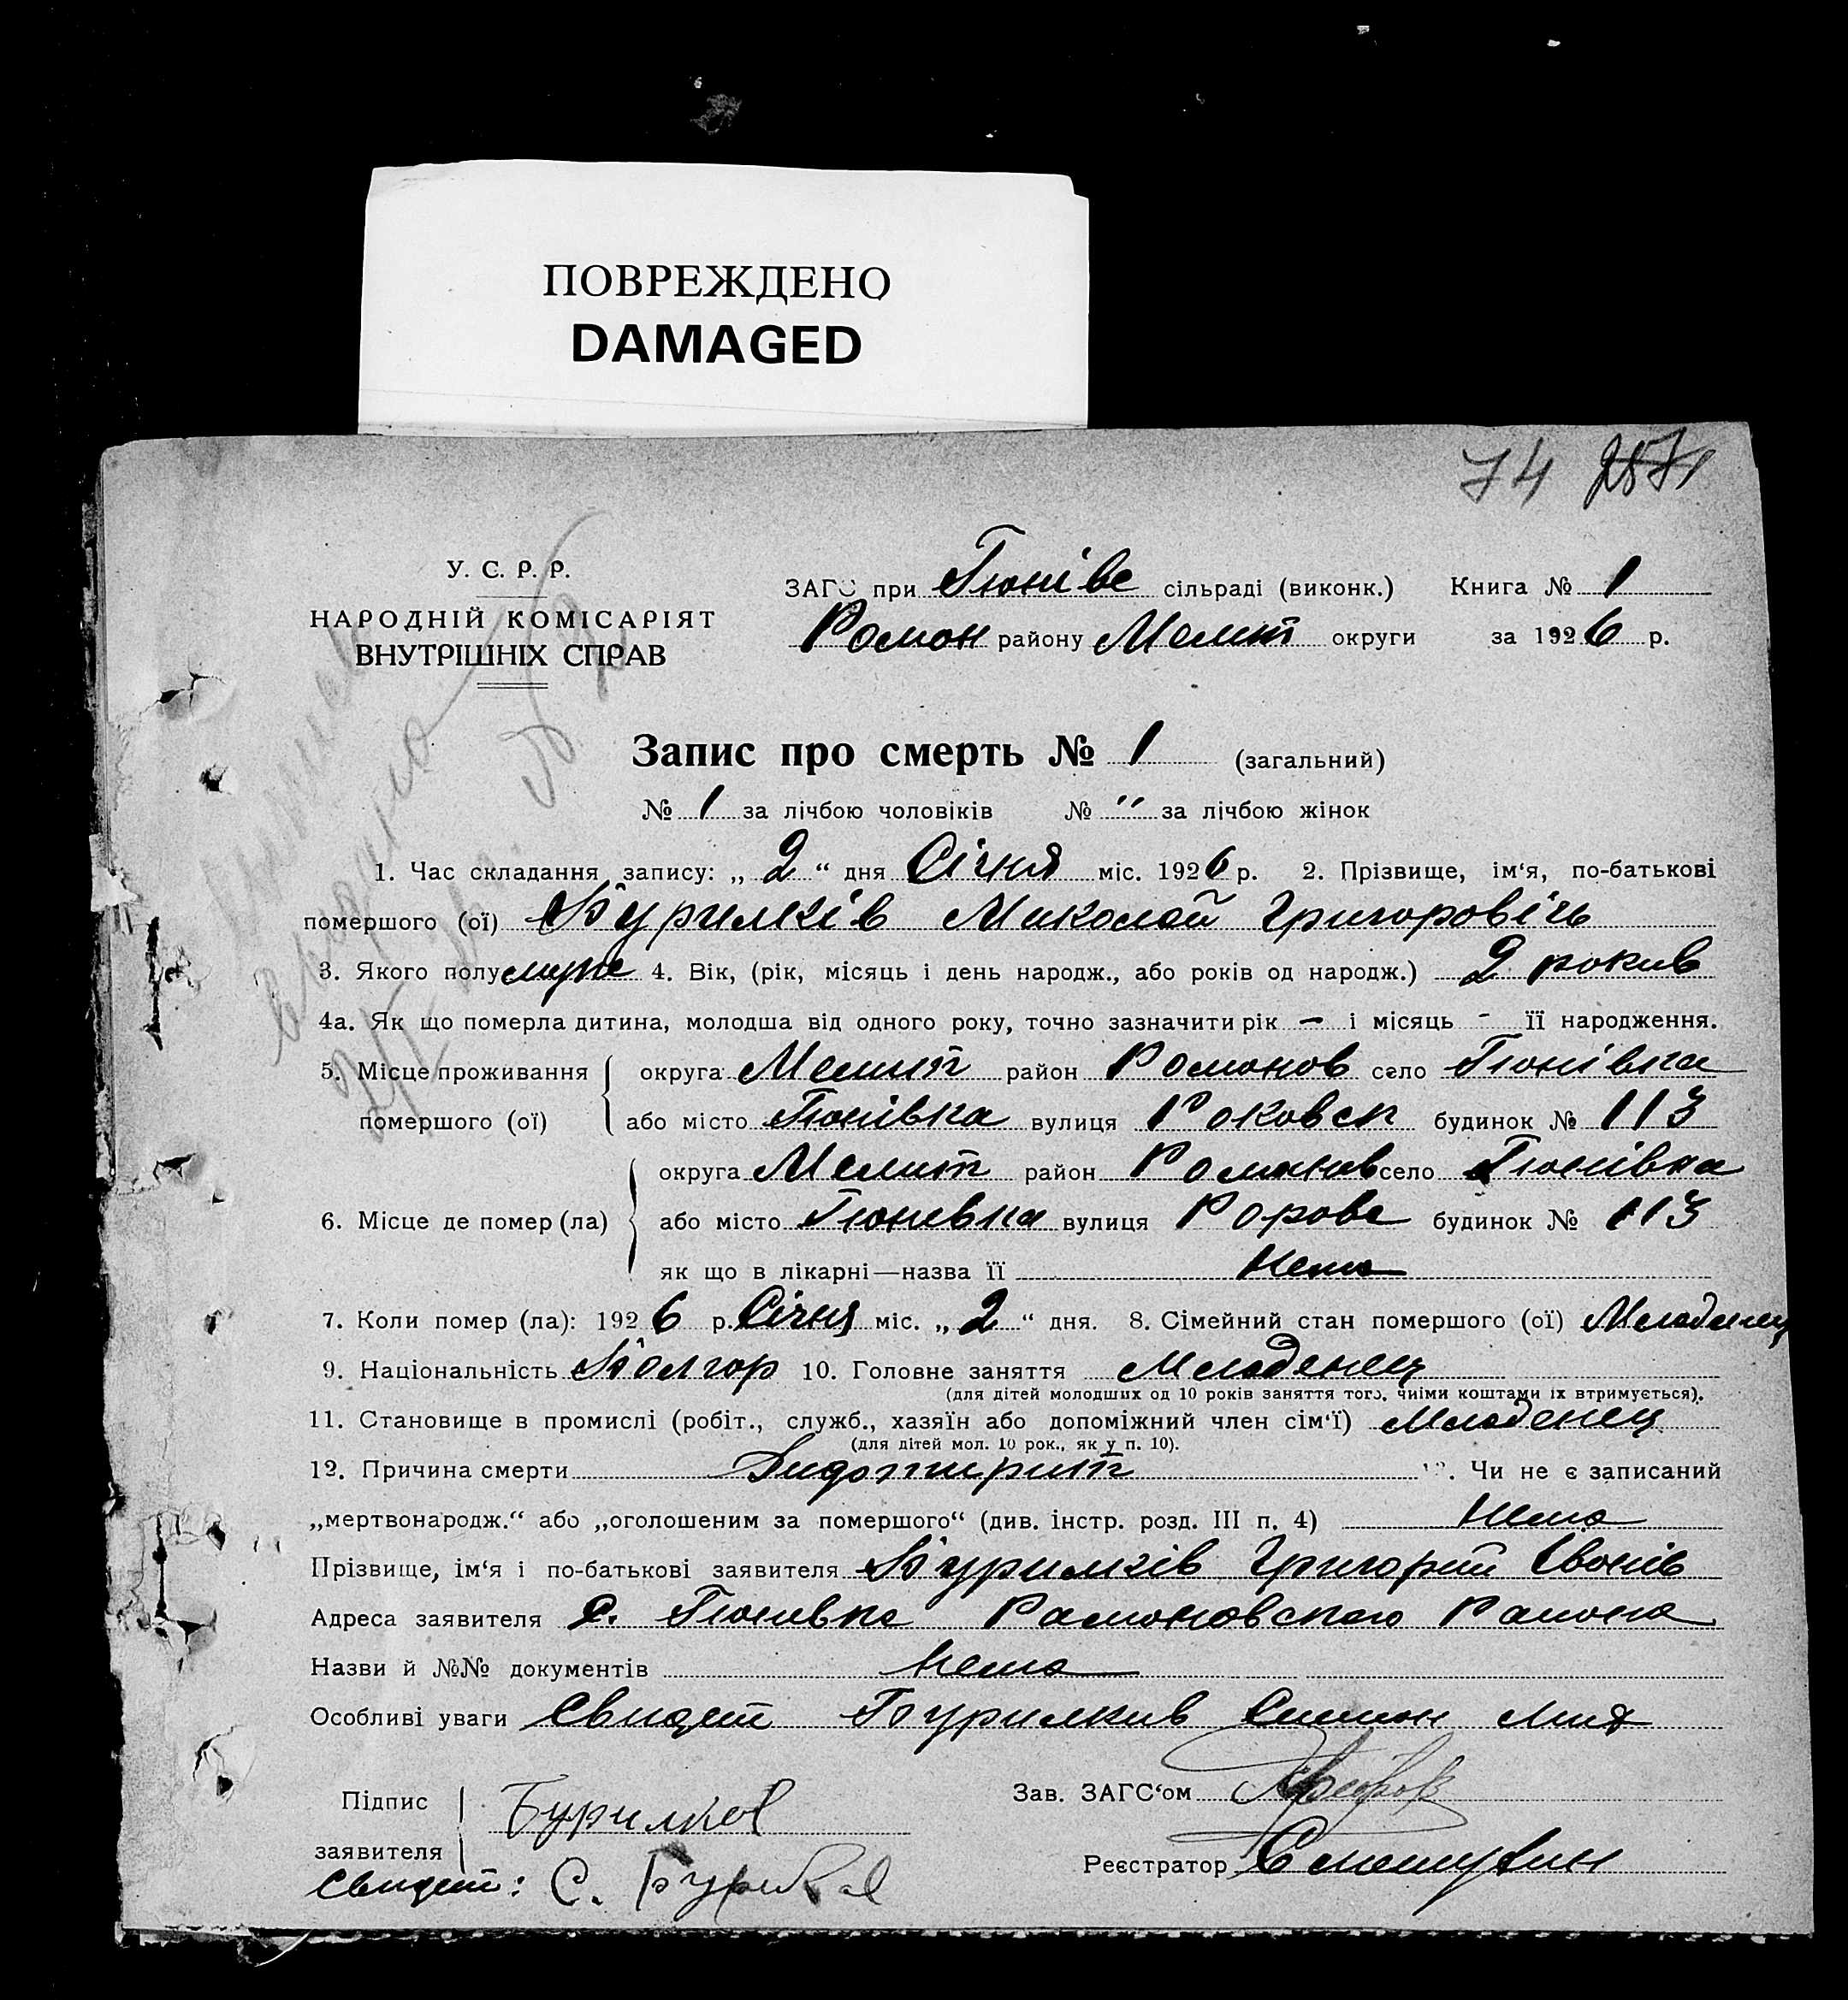 ПОВРЕЖДЕНО
DAMAGED
74 2871
У. С. Р. Р.
НАРОДНІЙ КОМІСАРІЯТ
ВНУТРІШНІХ СПРАВ
ЗАГС при Гюнівс сільраді (виконк.) Книга № 1
Роман району Мелит округи за 1926 р.
Запис про смерть № 1 (загальний)
№ 1 за лічбою чоловіків № " за лічбою жінок
1. Час складання запису: „ 2 “ дня Січня міс. 1926 р. 2. Прізвище, ім‘я, по-батькові
помершого (ої) Бурилків Миколай Григоровічь
3. Якого полу муже 4. Вік, (рік, місяць і день народж., або років од народж.) 2 рокив
4а. Як що померла дитина, молодша від одного року, точно зазначити рік — і місяць - її народження.
5. Місце проживання округа Мелит район Романов село Гюнівка
помершого (ої) або місто Гюнівка вулиця будинок № 113
округа Мелит район Романов село Гюнівка
6. Місце де помер (ла) або місто Гюневка вулиця будинок № 113
як що в лікарні—назва її Нема
7. Коли помер (ла): 1926 р. Січня міс. „ 2 “ дня. 8. Сімейний стан помершого (ої) Младенец
9. Національність Болгар 10. Головне заняття Младенец
(для дітей молодших од 10 років заняття того, чиїми коштами їх втримується).
11. Становище в промислі (робіт., служб., хазяїн або допоміжний член сім‘ї) Младенец
(для дітей мол. 10 рок., як у п. 10).
12. Причина смерти 13. Чи не є записаний
„мертвонародж.“ або „оголошеним за помершого“ (див. інстр. розд. III п. 4) Нема
Прізвище, ім‘я і по-батькові заявителя Бурилків Григорий Іванів
Адреса заявителя С. Гюневка Романовского Района
Назви й №№ документів Нема
Особливі уваги Свидет Бурилкив Симон
Підпис Бурилков Зав. ЗАГС‘ом
заявителя
Реєстратор
Свидет: С.